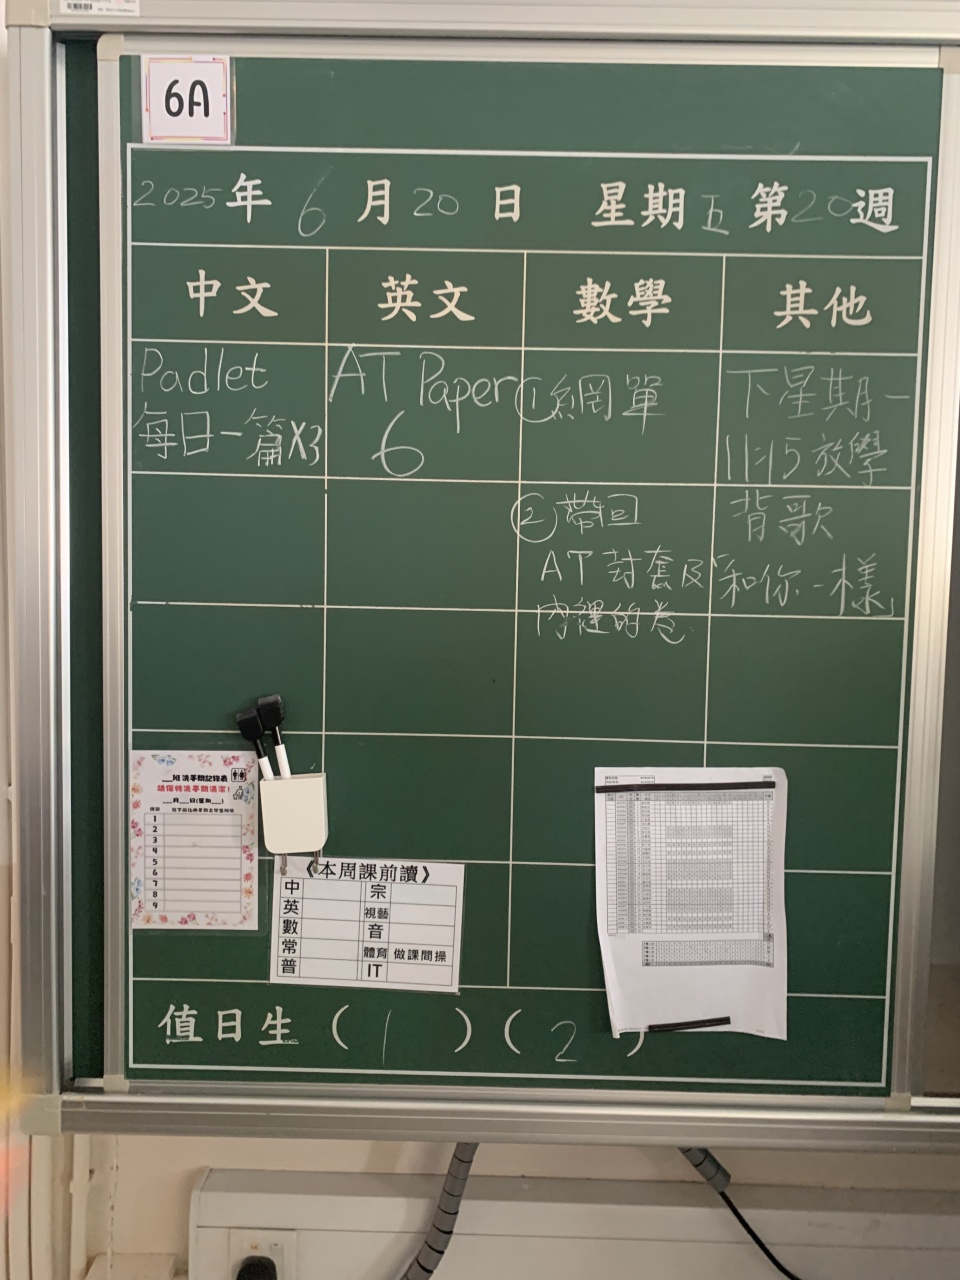 6A
2025年 6月20日 星期五 第20週
中文 英文 數學 其他
Padlet
每日一篇X3
AT Paper
6
①網單
②帶回
AT封套及
內裡的卷
下星期一
11:15放學
背歌
「和你一樣」
班洗手間記錄表
請保持洗手間清潔!
月 日(星期 )
1
2
3
4
5
6
7
8
9
《本周課前讀》
中 宗
英 視藝
數 音
常 體育 做課間操
普 IT
值日生 ( 1 ) ( 2 )